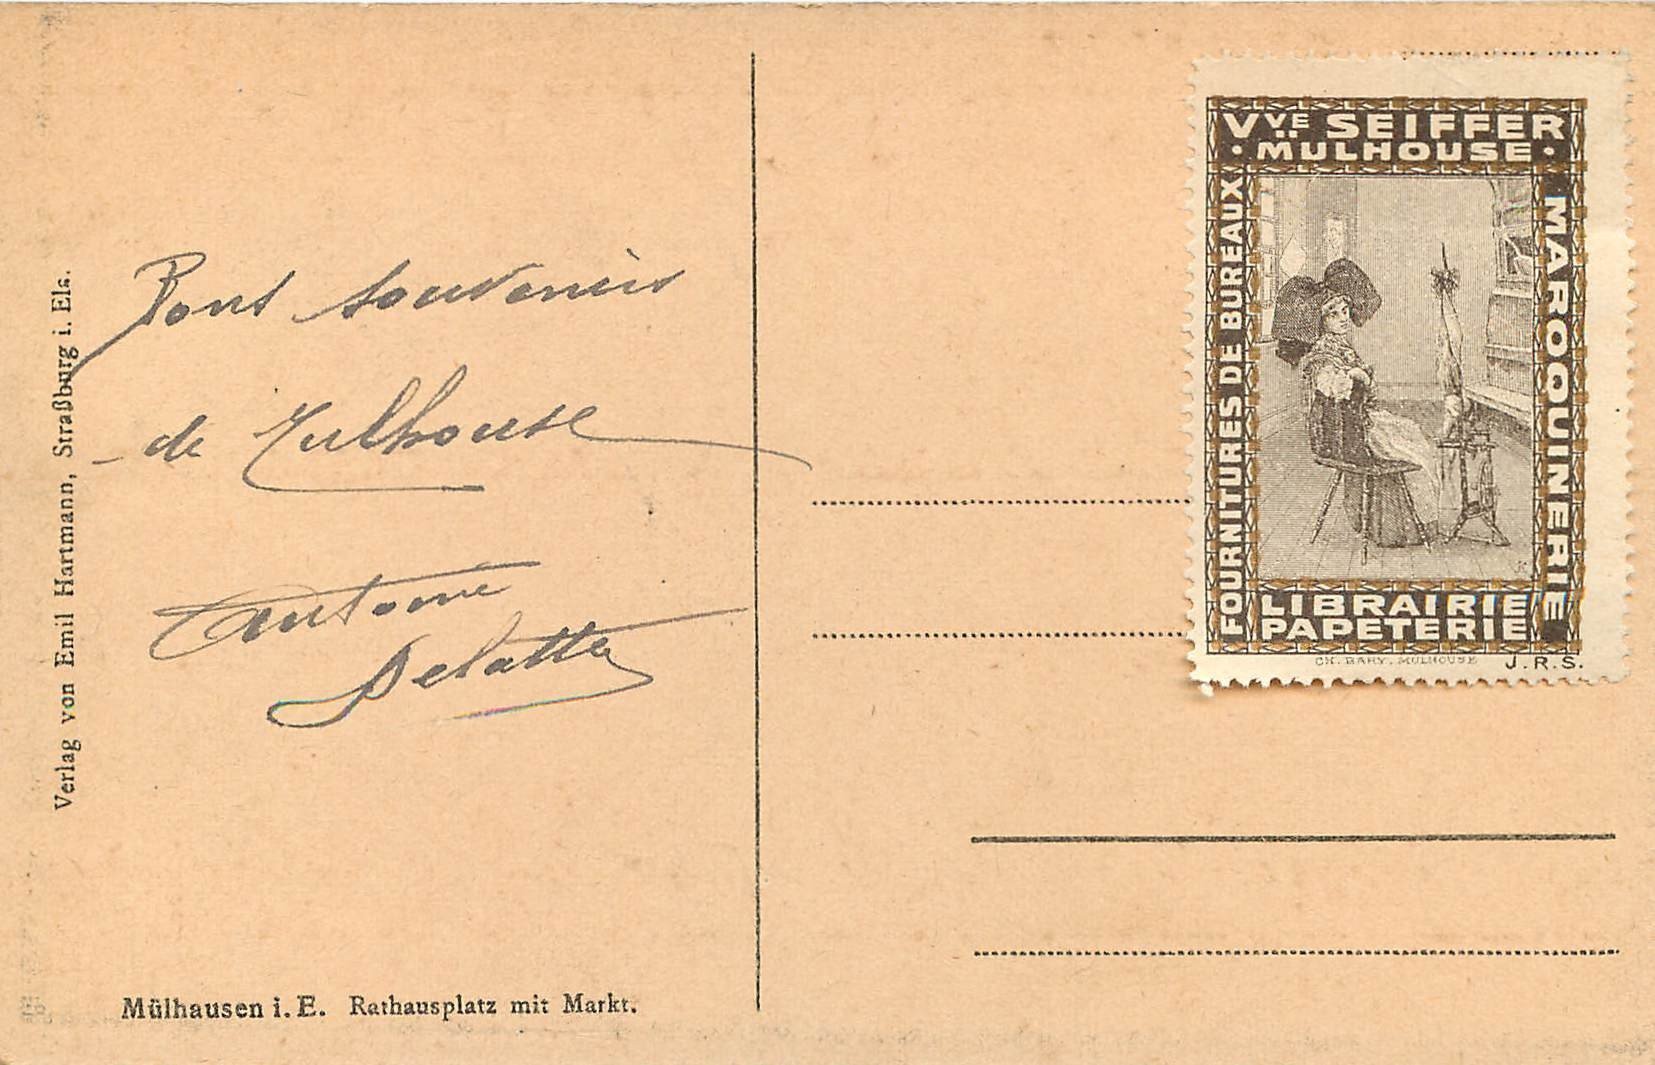 Verlag von Emil Hartmann, Straßburg i. Els.
Bons souvenirs
de Mulhouse
Antoine
Delatte
Mülhausen i. E. Rathausplatz mit Markt.
Vve SEIFFER
· MULHOUSE ·
FOURNITURES DE BUREAUX
MAROQUINERIE
LIBRAIRIE
PAPETERIE
CH. BAHY. MULHOUSE J.R.S.